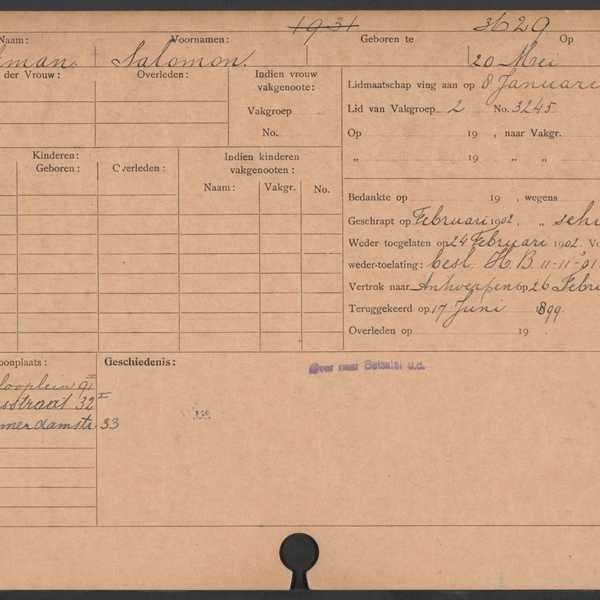 1931 3629
Naam: Voornamen: Geboren te Op
Salomon. 20 Mei
der Vrouw: Overleden: Indien vrouw vakgenoote: Lidmaatschap ving aan op 8 Januari
Vakgroep Lid van Vakgroep 2 No. 3245
No. Op 19 , naar Vakgr.
„ 19 „ „
Kinderen: Indien kinderen vakgenooten:
Geboren: Overleden: Naam: Vakgr. No.
Bedankte op 19 , wegens
Geschrapt op Februari 1902. „ schu
Weder toegelaten op 24 Februari 1902. Vo
weder-toelating: besl. H.B. 11-11-'01
Vertrok naar Antwerpen op 26 Febru
Teruggekeerd op 17 Juni 899
Overleden op 19
oonplaats: Geschiedenis:
looplein 9 I
sstraat 32 I
merdamstr. 33
Over naar Betaals. u.d.